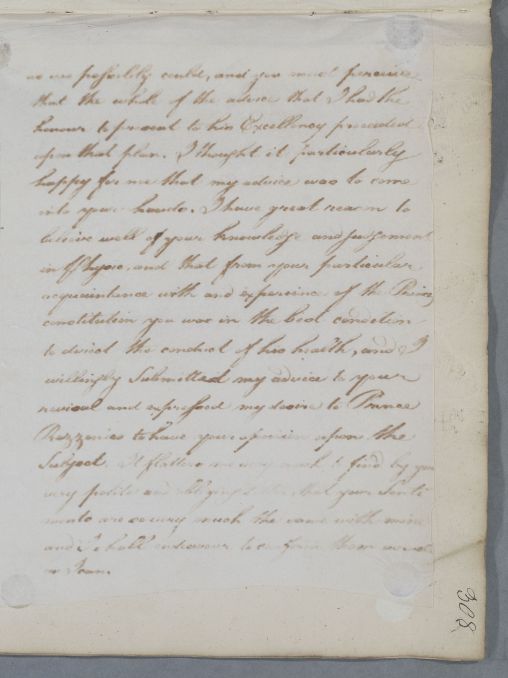 as we possibly could, and you must perceive
that the whole of the advice that I had the
honour to present to his Excellency proceeded
upon that plan. I thought it particularly
happy for me that my advice was to come
into your hands. I have great reason to
believe well of your knowledge and judgement
in Physic, and that from your particular
acquaintance with and experience of the Princes
constitution you was in the best condition
to direct the conduct of his health, and I
willingly submitted my advice to your
revisal and expressed my desire to Prince
to have your opinion upon the
Subject. It flatters me very much to find by your
very polite and obliging letter that your Senti
ments are so very much the same with mine
and I shall endeavour to confirm them
308